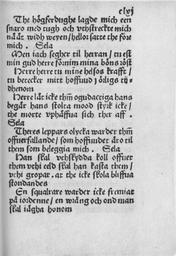 clvj
The höghferdughe lagde mich een
snaro med tugh och vthstreckte mich
näät widh weyen / hellot satte the foor
mich. Sela
Men iach segher til herran / tu est
min gud herre förnim mina böns röst
Herre herre tu mine helsos krafft /
tu betecke mitt hoffuud j ödlogs ti-
dhenom
Herre låt icke them ogudactiga hans
begär hans stolca mood styrk icke /
the motte vphäffua sich ther aff.
Sela
Theres leppars olycka warder them
offuerfallande / som hoffuuder äro til
them som beleggia mich. Sela
Han skal vthskydda koll offuer
them vthi eeld skal han kasta them /
vthi gropar at the icke skola bliffua
stondandes
En squalrare warder icke fremiat
på iordenne / en wräng och ond man
skal iägha honom